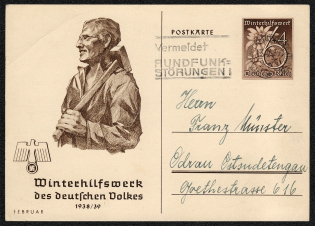 POSTKARTE
Winterhilfswerk
6 + 4
Vermeidet
RUNDFUNK-
STÖRUNGEN!
Herrn
Franz Münster
Odrau Ostsudetengau
Goethestrasse 616
Winterhilfswerk
des deutschen Volkes
1938/39
FEBRUAR